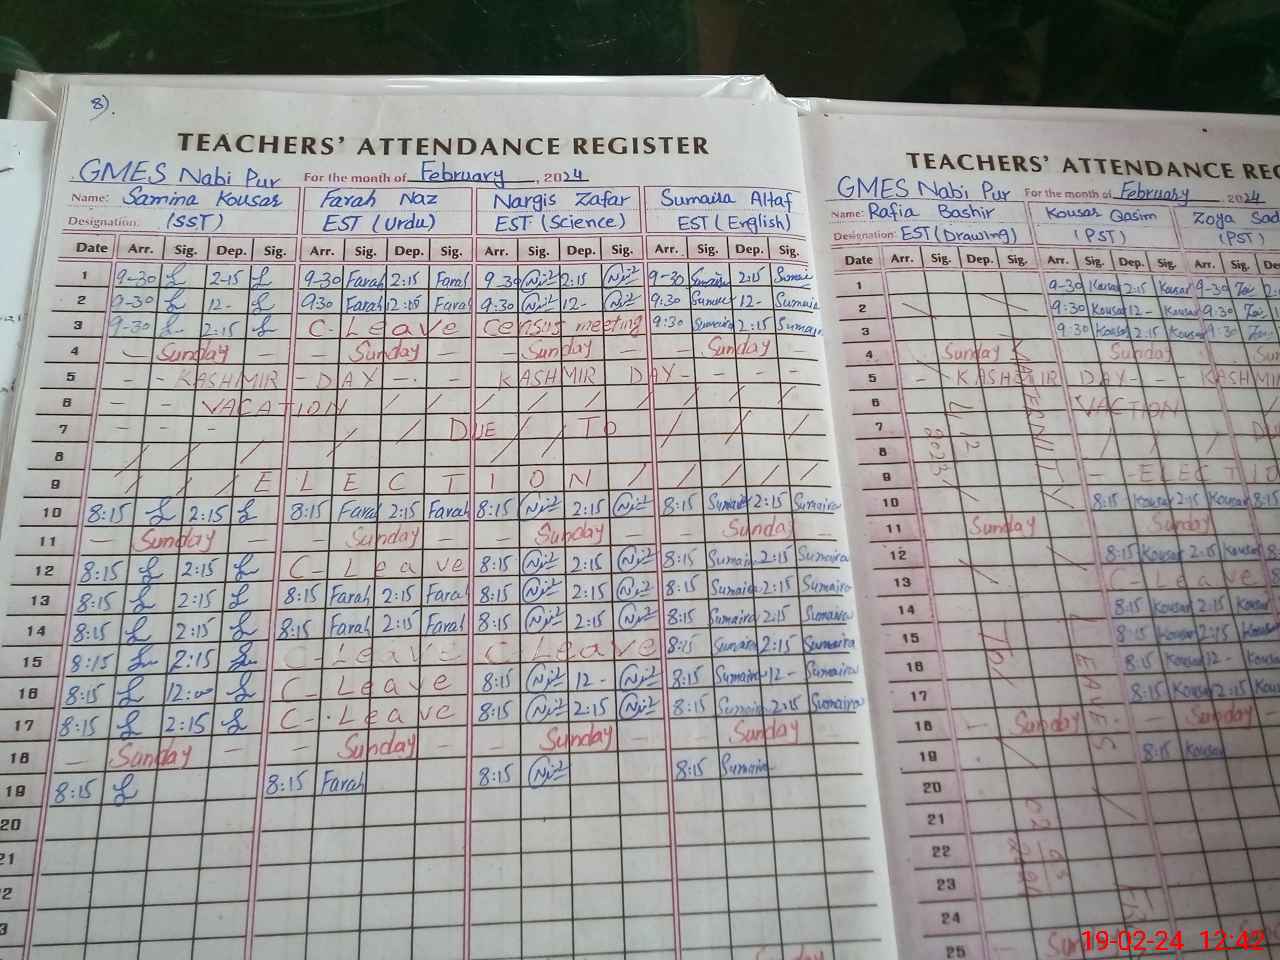 8).
TEACHERS' ATTENDANCE REGISTER
GMES Nabi Pur For the month of February, 2024
Name: Samina Kousar Farah Naz Nargis Zafar Sumaira Altaf
Designation: (SST) EST (Urdu) EST (Science) EST (English)
Date Arr. Sig. Dep. Sig. Arr. Sig. Dep. Sig. Arr. Sig. Dep. Sig. Arr. Sig. Dep. Sig.
1 9-30 2-15 9-30 Farah 2:15 Farah 9.30 2:15 9-30 Sumaira 2:15 Sumaira
2 9-30 12- 9:30 Farah 12:15 Farah 9:30 12- 9:30 Sumaira 12- Sumaira
3 9-30 2:15 C-Leave Census meeting 9:30 Sumaira 2:15 Sumaira
4 - Sunday - - Sunday - - Sunday - - Sunday -
5 - - KASHMIR - DAY - - KASHMIR DAY - - -
6 - - VACATION / / / / / / / / /
7 - - - / / DUE / / TO / / /
8 / / / / / / / / / / / /
9 / / / E L E C T I O N / / / / /
10 8:15 2:15 8:15 Farah 2:15 Farah 8:15 2:15 8:15 Sumaira 2:15 Sumaira
11 - Sunday - - Sunday - Sunday - Sunday
12 8:15 2:15 C-Leave 8:15 2:15 8:15 Sumaira 2:15 Sumaira
13 8:15 2:15 8:15 Farah 2:15 Farah 8:15 2:15 8:15 Sumaira 2:15 Sumaira
14 8:15 2:15 8:15 Farah 2:15 Farah 8:15 2:15 8:15 Sumaira 2:15 Sumaira
15 8:15 2:15 C-Leave C-Leave 8:15 Sumaira 2:15 Sumaira
16 8:15 12:00 C-Leave 8:15 12- 8:15 Sumaira 12- Sumaira
17 8:15 2:15 C-Leave 8:15 2:15 8:15 Sumaira 2:15 Sumaira
18 - Sunday - - Sunday - - Sunday - - Sunday -
19 8:15 8:15 Farah 8:15 8:15 Sumaira
20
21
22
TEACHERS' ATTENDANCE REG
GMES Nabi Pur For the month of February, 2024
Name: Rafia Bashir Kousar Qasim Zoya Sad
Designation: EST (Drawing) (PST) (PST)
Date Arr. Sig. Dep. Sig. Arr. Sig. Dep. Sig. Arr. Sig. De
1 9-30 Kousar 2:15 Kousar 9-30
2 9:30 Kousar 12- Kousar 9:30
3 9:30 Kousar 2:15 Kousar 9:30
4 Sunday Sunday Sun
5 - - KASHMIR DAY - - KASHMIR
6 VACTION
7
8
9 - - ELECTIO
10 8:15 Kousar 2:15 Kousar 8:15
11 Sunday Sunday
12 8:15 Kousar 2:15 Kousar
13 C-Leave
14 8:15 Kousar 2:15 Kousar
15 8:15 Kousar 2:15 Kousar
16 8:15 Kousar 12- Kousar
17 8:15 Kousar 2:15 Kousar
18 - Sunday - Sunday
19 8:15 Kousar
20
21
22
23
24
25
MATERNITY LEAVES
19-02-24 12:42